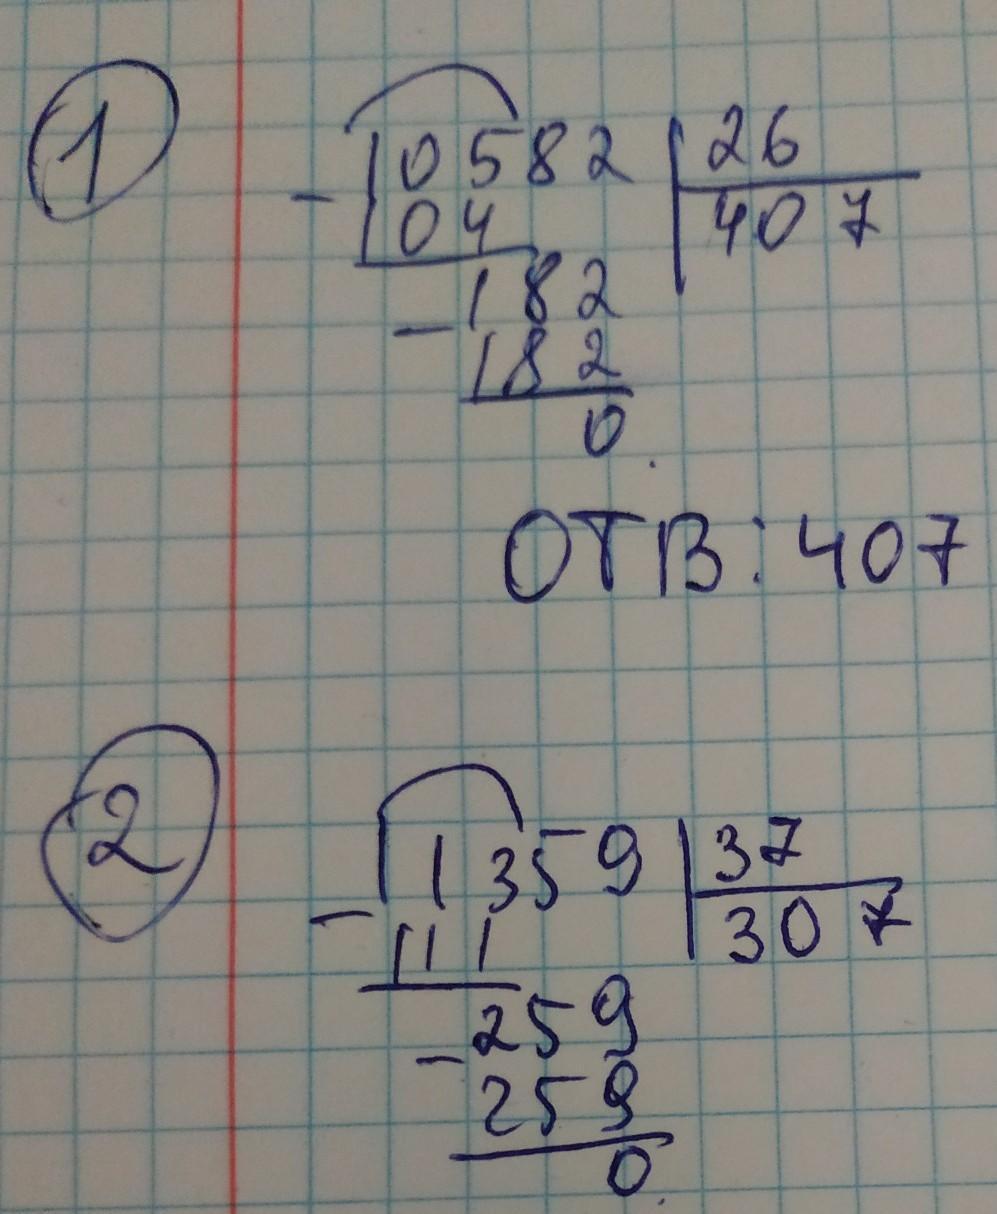 1
10582 26
- 104 407
182
- 182
0
ОТВ: 407
2
11359 37
- 111 307
259
- 259
0